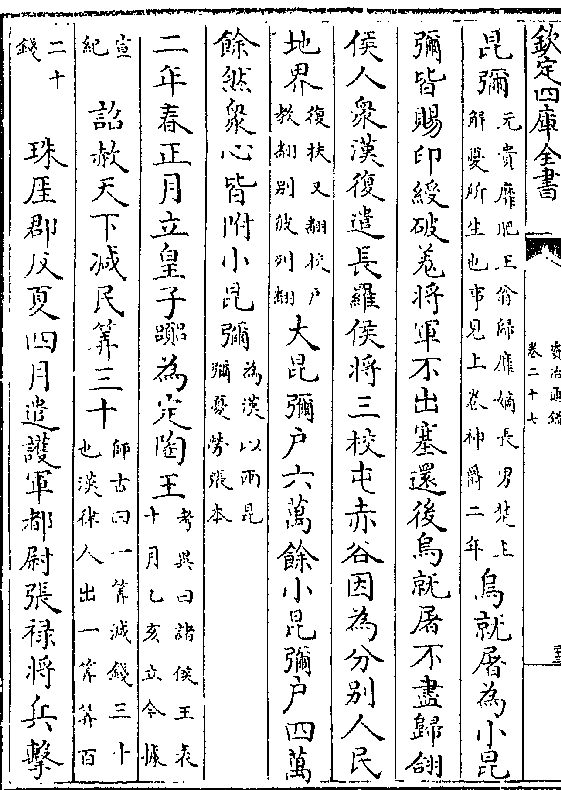 欽定四庫全書
資治通鑑
卷二十七
昆彌元貴靡肥王翁歸靡嫡長男楚主解憂所生也事見上卷神爵二年烏就屠為小昆
彌皆賜印綬破羌將軍不出塞還後烏就屠不盡歸翖
侯人衆漢復遣長羅侯將三校屯赤谷因為分别人民
地界復扶又翻校户教翻别彼列翻大昆彌户六萬餘小昆彌户四萬
餘然衆心皆附小昆彌為漢以兩昆彌憂勞張本
二年春正月立皇子嚻為定陶王考異曰諸侯王表十月乙亥立今據
宣紀詔赦天下減民筭三十師古曰一筭減錢三十也漢律人出一筭筭百
二十錢珠厓郡反夏四月遣護軍都尉張禄將兵擊